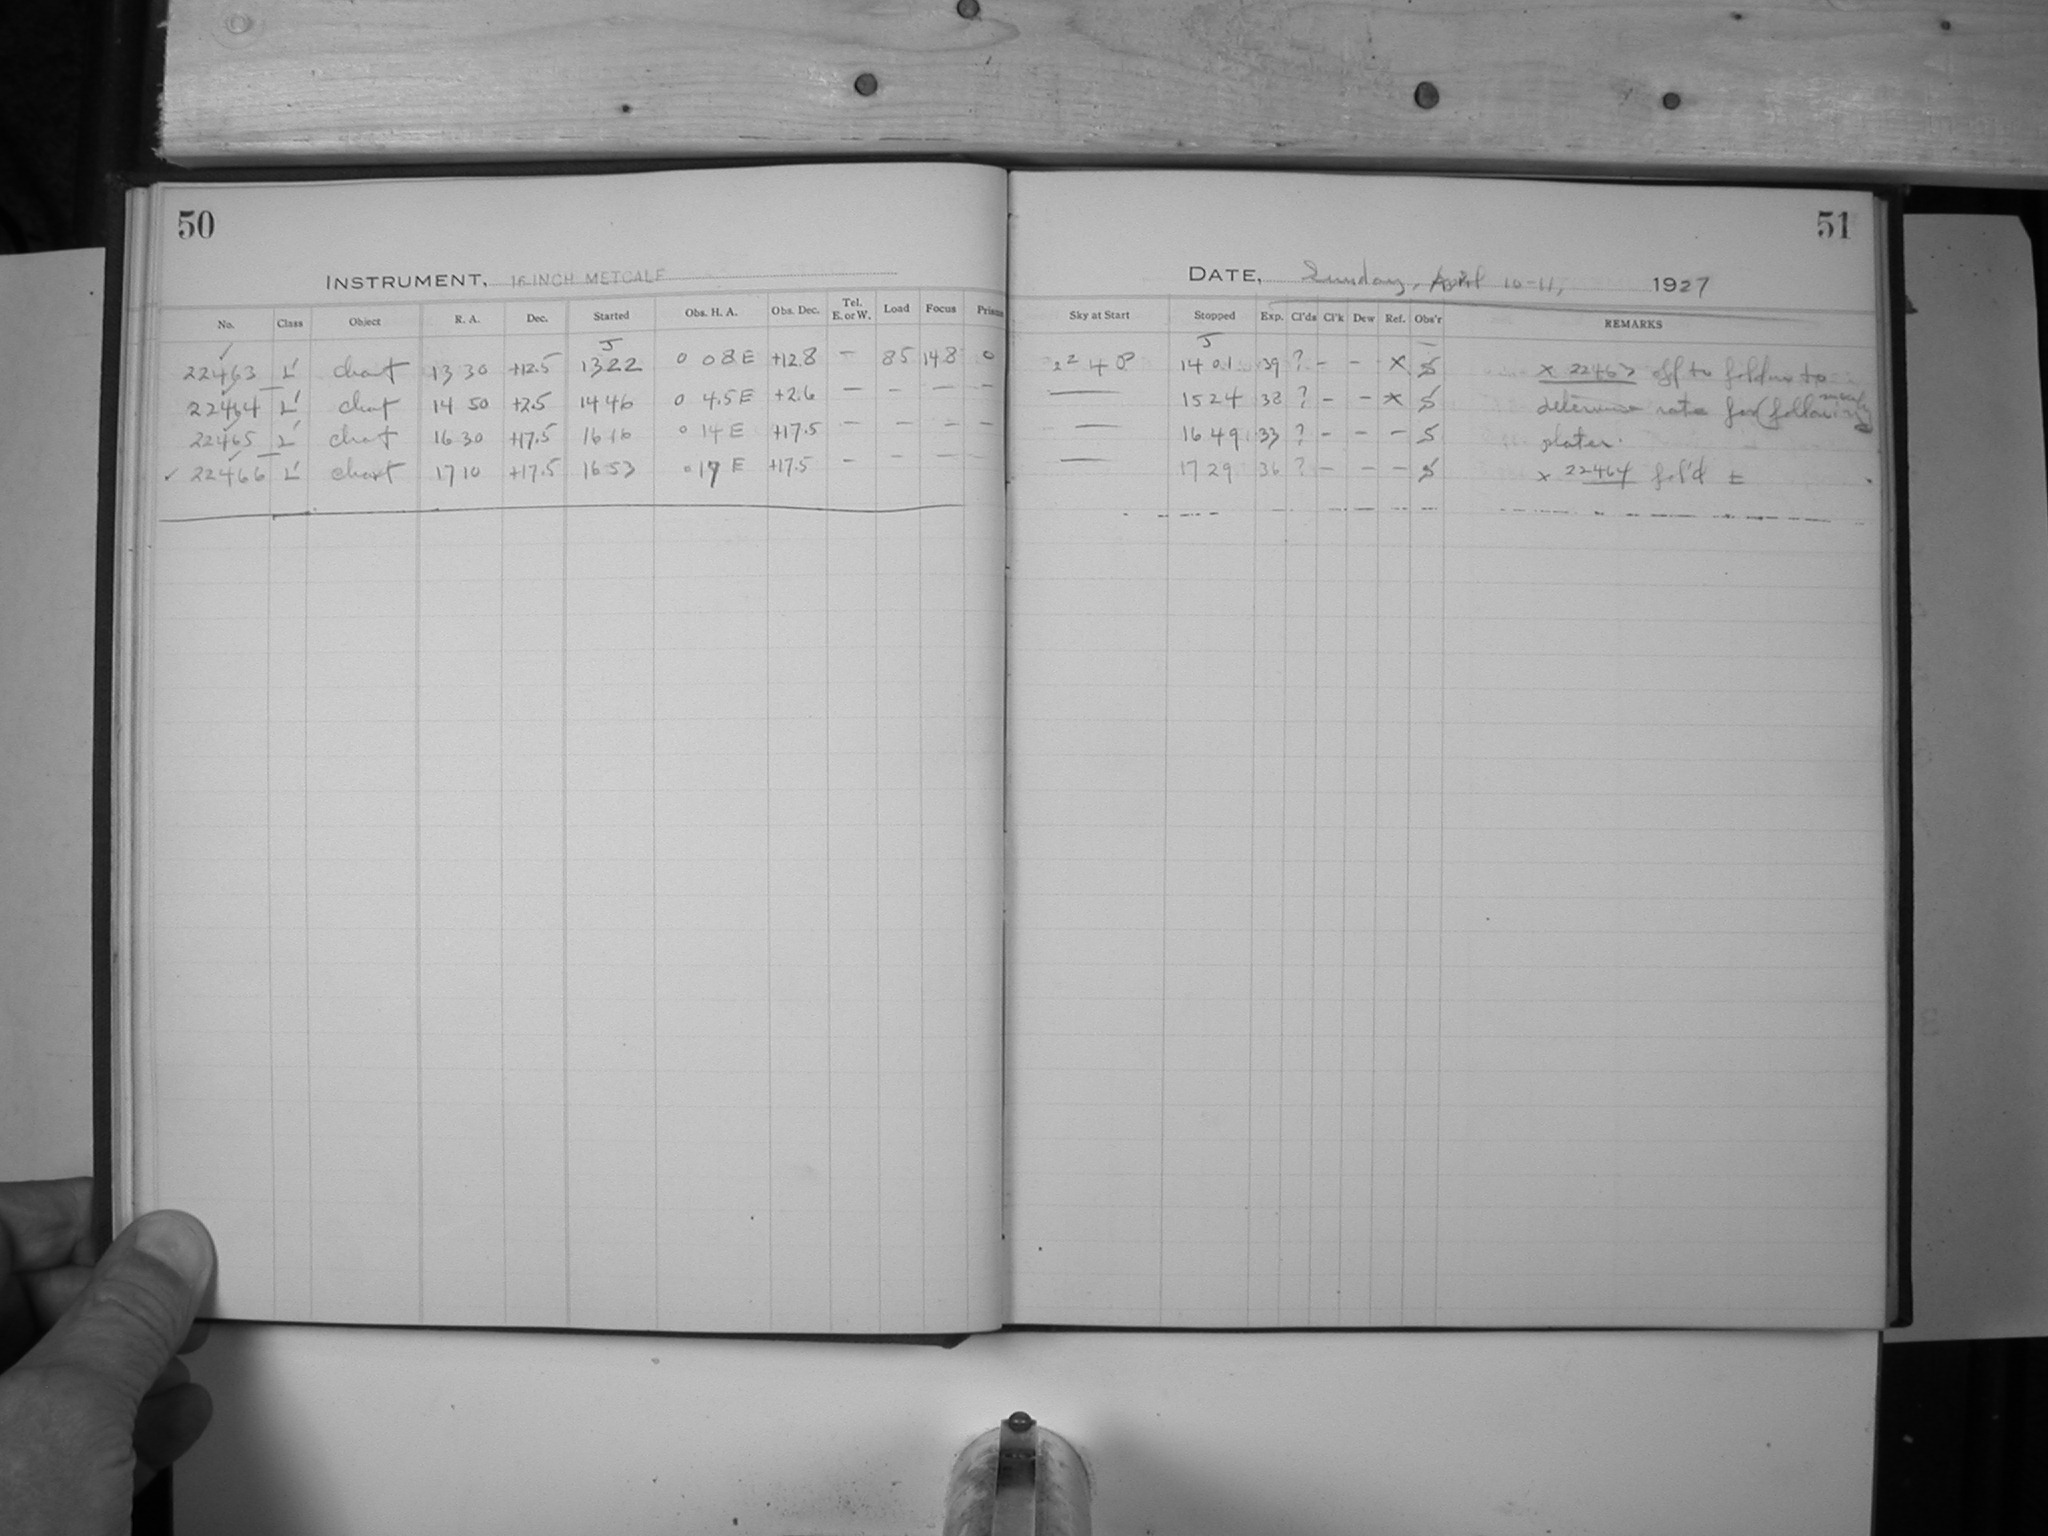 50
INSTRUMENT, 16-INCH METCALF
No. Class Object R. A. Dec. Started Obs. H. A. Obs. Dec. Tel. E. or W. Load Focus Prism
J
22463 L' chart 13 30 +12.5 1322 0 08 E +12.8 — 85 14.8 0
22464 L' chart 14 50 +2.5 1446 0 4.5 E +2.6 — — — —
22465 L' chart 16 30 +17.5 1616 0 14 E +17.5 — — — —
✓ 22466 L' chart 17 10 +17.5 1653 0 17 E +17.5 — — — —
51
DATE, Sunday, April 10-11, 1927
Sky at Start Stopped Exp. Cl'ds Cl'k Dew Ref. Obs'r REMARKS
J
1401 39 ? - - x S x 22463 off to follow to
— 1524 38 ? - - x S determine rate for following
— 1649 33 ? - - - S plates.
— 1729 36 ? - - - S x 22464 fol'd ±